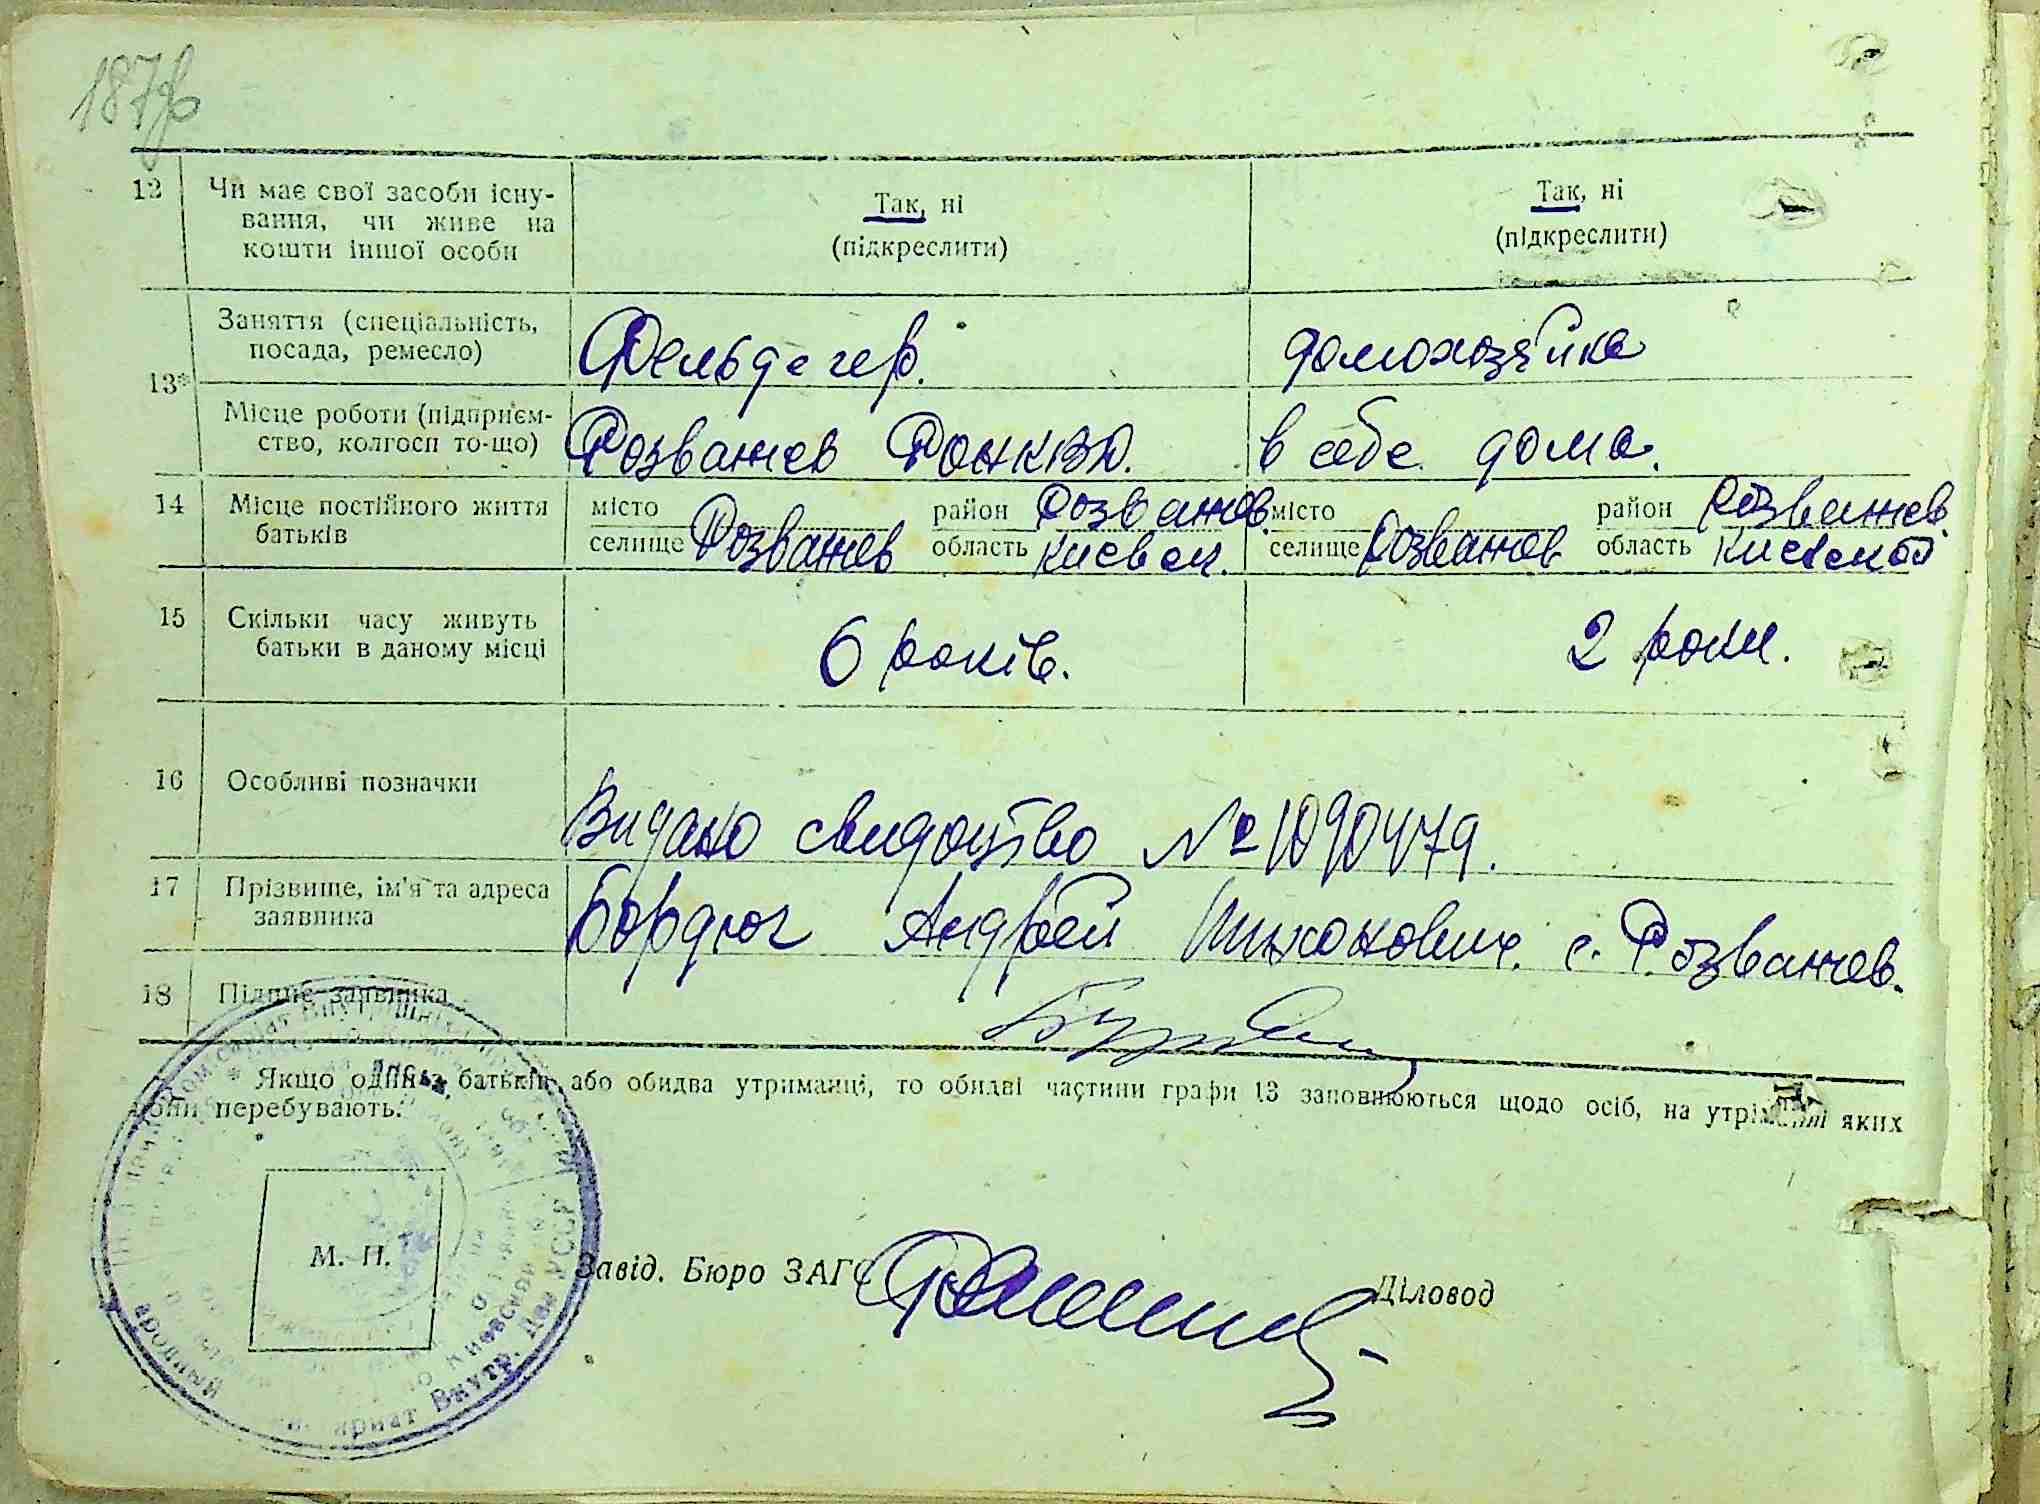 12 Чи має свої засоби існу-
вання, чи живе на
кошти іншої особи
Так, ні
(підкреслити)
Так, ні
(підкреслити)
13*
Заняття (спеціальність,
посада, ремесло)
Фельдегер.
домохозяйка
Місце роботи (підприєм-
ство, колгосп то-що)
Розважев
в себе дома.
14 Місце постійного життя
батьків
місто
район Розважев
селище Розважев
область Киевск.
місто
район Розважев
селище Розважев
область Киевской
15 Скільки часу живуть
батьки в даному місці
6 років.
2 роки.
16 Особливі позначки
Видано свидоцтво № 1090479.
17 Прізвище, ім'я та адреса
заявника
Бордюг Андрей с. Розважев.
18 Підпис заявника
Якщо один із батьків або обидва утриманці, то обидві частини графи 13 заповнюються щодо осіб, на утриманні яких
вони перебувають.
М. П.
Завід. Бюро ЗАГС
Діловод